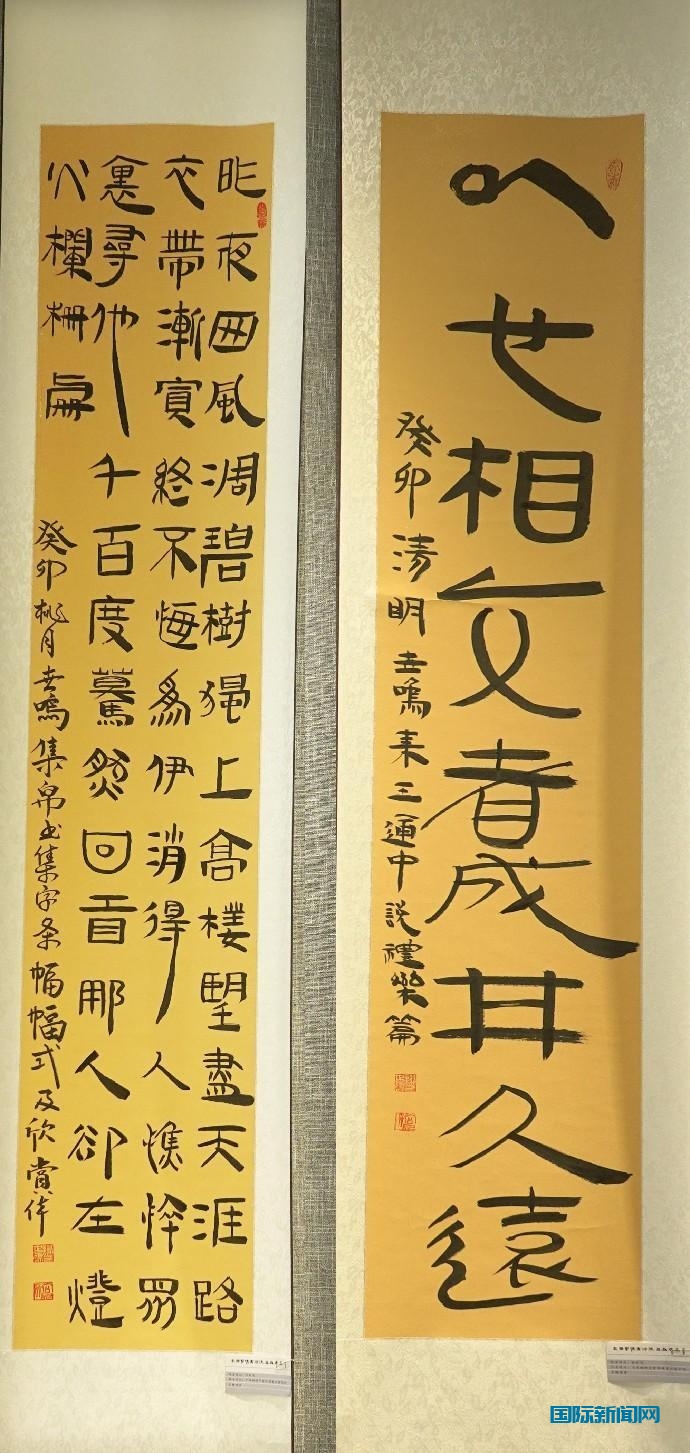 以世相交者成其久遠
癸卯清明壵鳴录王通中說禮樂篇
昨夜西風凋碧樹獨上高樓望盡天涯路
衣帶漸寬終不悔為伊消得人憔悴眾
裏尋他千百度驀然回首那人卻在燈
火欄柵處
癸卯桃月壵鳴集帛书集字条幅幅式及欣賞作
国际新闻网